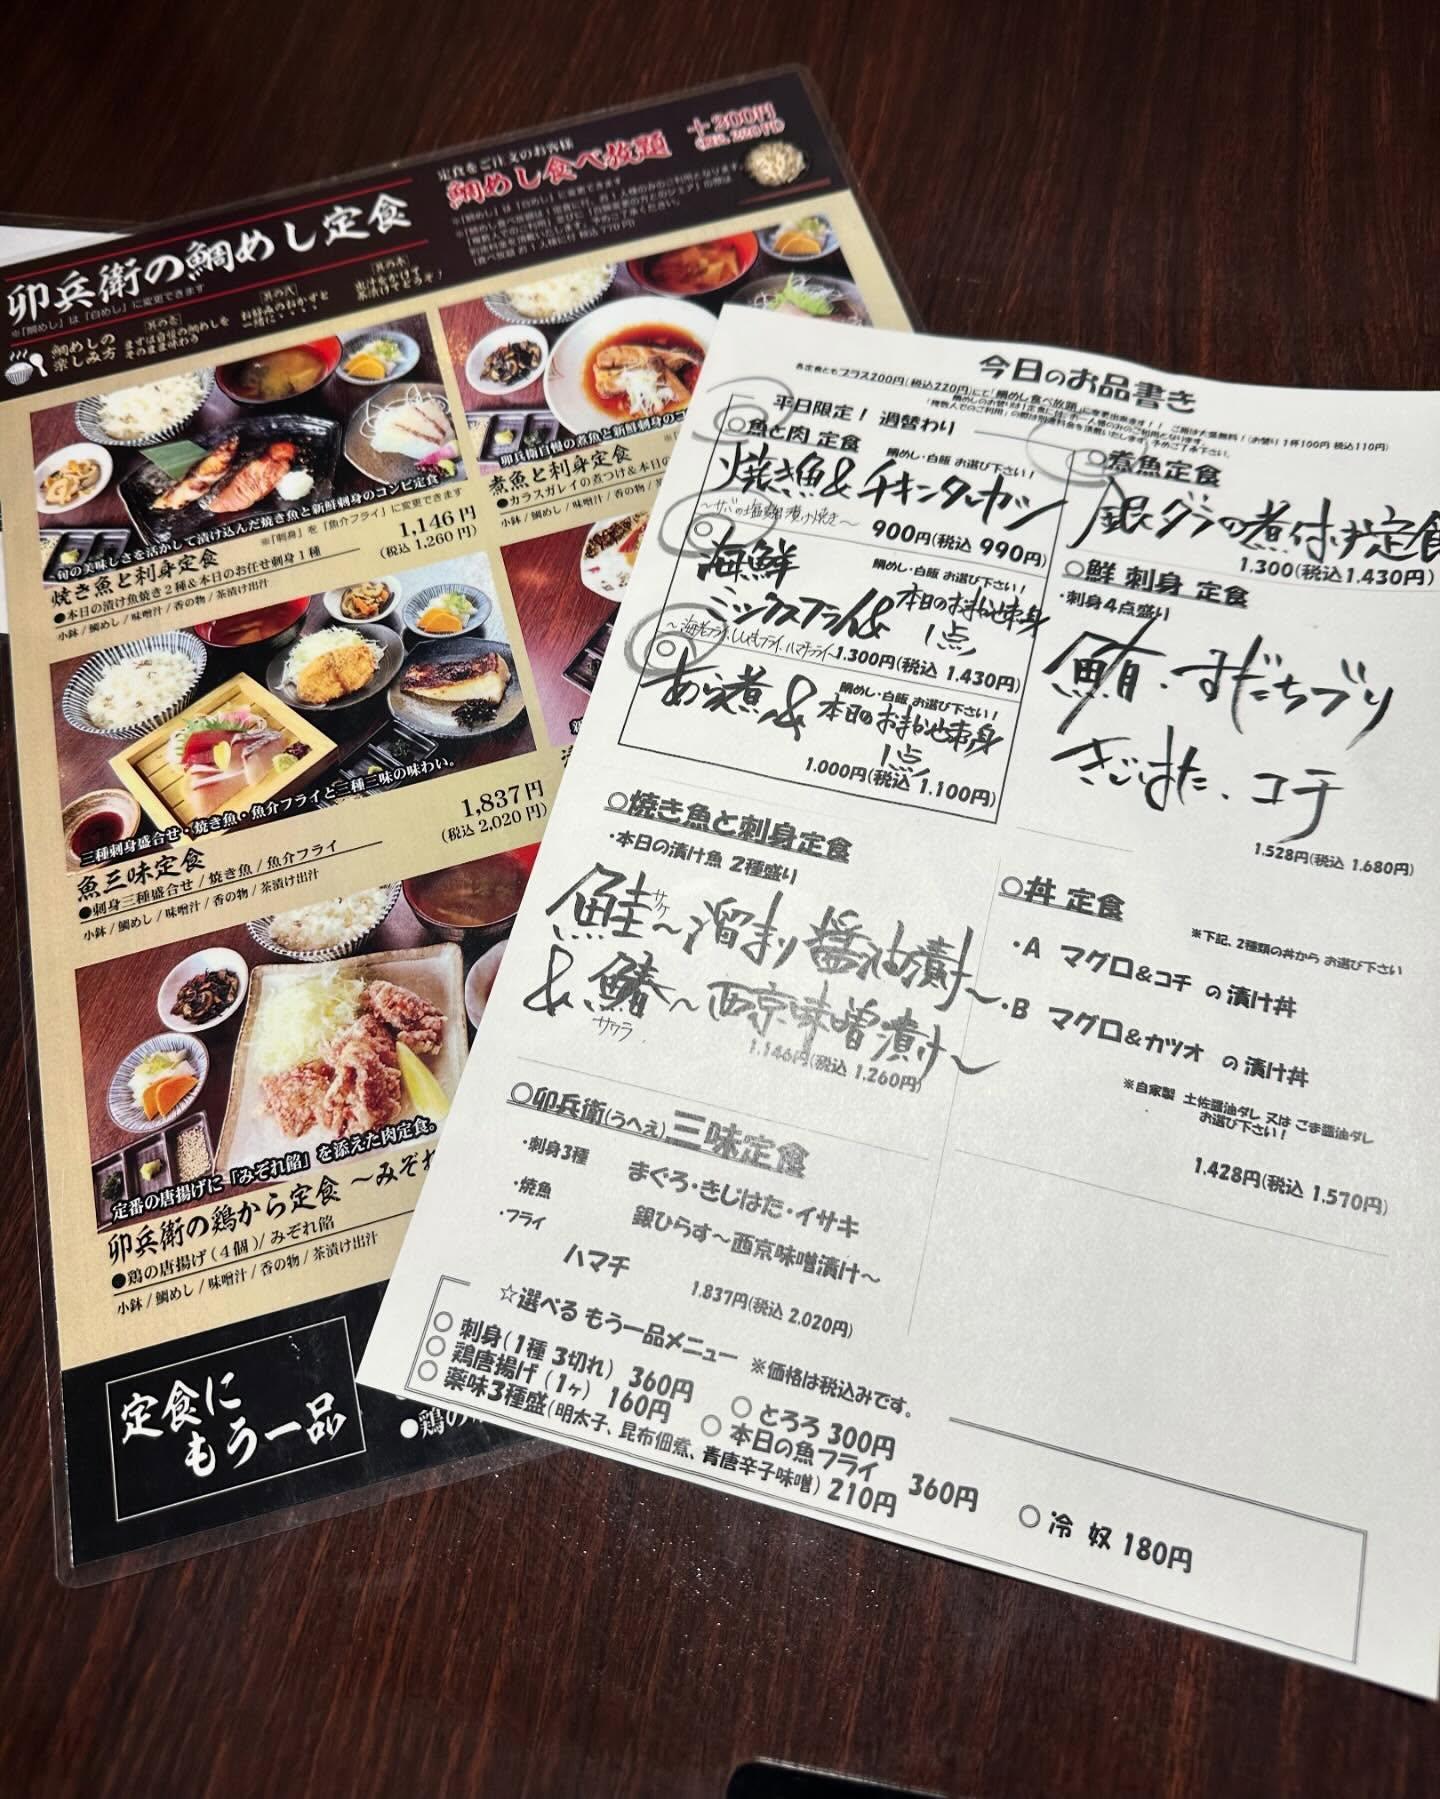 卯兵衛の鯛めし定食
※「鯛めし」は「白めし」に変更できます
定食をご注文のお客様
鯛めし食べ放題
＋200円
(税込 220円)
鯛めしの
楽しみ方
其の壱
まずは自慢の鯛めしを
そのまま味わう
其の弐
お好みのおかずと
一緒に・・・・
其の参
出汁をかけて
茶漬けでどうぞ！
旬の美味しさを活かして漬け込んだ焼き魚と新鮮刺身のコンビ定食
焼き魚と刺身定食
※「刺身」を「魚介フライ」に変更できます
1,146円
(税込 1,260円)
●本日の漬け魚焼き2種&本日のお任せ刺身1種
小鉢/鯛めし/味噌汁/香の物/茶漬け出汁
卯兵衛自慢の煮魚と新鮮刺身のコ
煮魚と刺身定食
●カラスガレイの煮つけ&本日の
小鉢/鯛めし/味噌汁/香の物/茶
三種刺身盛合せ・焼き魚・魚介フライと三種三味の味わい。
魚三味定食
1,837円
(税込 2,020円)
●刺身三種盛合せ/焼き魚/魚介フライ
小鉢/鯛めし/味噌汁/香の物/茶漬け出汁
定番の唐揚げに「みぞれ餡」を添えた肉定食。
卯兵衛の鶏から定食 〜みぞれ
●鶏の唐揚げ(4個)/みぞれ餡
小鉢/鯛めし/味噌汁/香の物/茶漬け出汁
定食に
もう一品
●鶏の
今日のお品書き
各定食ともプラス200円(税込220円)にて「鯛めし食べ放題」に変更出来ます！！ ご飯は大盛無料！(お替り1杯100円 税込110円)
平日限定！ 週替わり
○魚と肉 定食
鯛めし・白飯 お選び下さい！
焼き魚&チキンタルガン
〜サバの塩麹漬け焼き〜
900円(税込 990円)
○海鮮
鯛めし・白飯 お選び下さい！
ミックスフライ&本日のおまかせ刺身
1点
1.300円(税込 1.430円)
○
鯛めし・白飯 お選び下さい！
あら煮&本日のおまかせ刺身
1点
1.000円(税込 1.100円)
○煮魚定食
銀ダラの煮付け定食
1.300(税込1.430円)
○鮮 刺身 定食
・刺身4点盛り
鮪・すだちブリ
きじはた、コチ
1.528円(税込 1.680円)
○焼き魚と刺身定食
・本日の漬け魚 2種盛り
鮭〜溜まり醤油漬け〜
サケ
&鰆〜西京味噌漬け〜
サワラ
1.146円(税込 1.260円)
○丼 定食
※下記、2種類の丼から お選び下さい
・A マグロ&コチ の漬け丼
・B マグロ&カツオ の漬け丼
※自家製 土佐醤油ダレ 又は ごま醤油ダレ
お選び下さい！
1.428円(税込 1.570円)
○卯兵衛(うへえ)三味定食
・刺身3種 まぐろ・きじはた・イサキ
・焼魚 銀ひらす〜西京味噌漬け〜
・フライ ハマチ
1.837円(税込 2.020円)
☆選べる もう一品メニュー ※価格は税込みです。
○ 刺身(1種 3切れ) 360円
○ 鶏唐揚げ(1ヶ) 160円
○ 薬味3種盛(明太子、昆布佃煮、青唐辛子味噌) 210円
○ とろろ 300円
○ 本日の魚フライ 360円
○ 冷 奴 180円